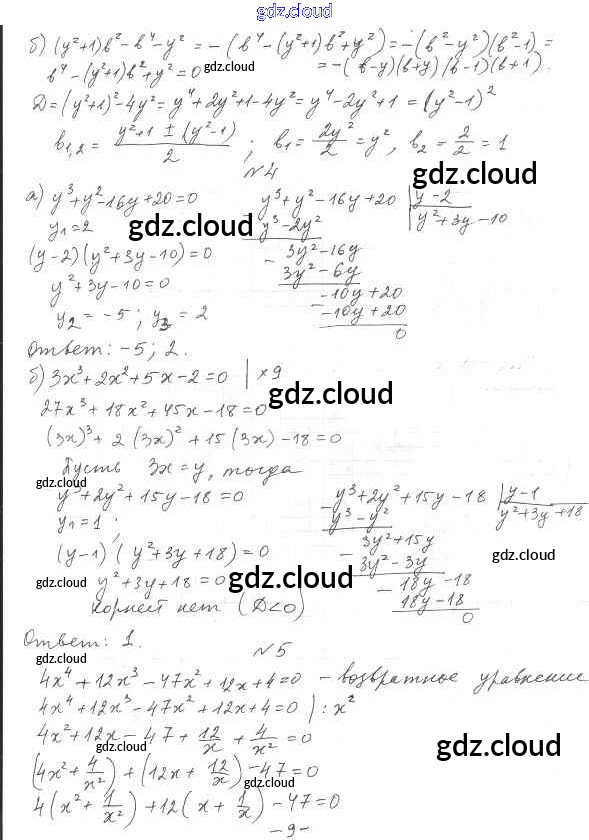 gdz.cloud
б) (y²+1)b² - b⁴ - y² = -(b⁴ - (y²+1)b² + y²) = -(b² - y²)(b² - 1) =
b⁴ - (y²+1)b² + y² = 0 gdz.cloud = -(b-y)(b+y)(b-1)(b+1).
D = (y²+1)² - 4y² = y⁴ + 2y² + 1 - 4y² = y⁴ - 2y² + 1 = (y² - 1)²
b₁,₂ = (y²+1 ± (y²-1))/2 ; b₁ = 2y²/2 = y², b₂ = 2/2 = 1
№4 gdz.cloud
а) y³ + y² - 16y + 20 = 0
y₁ = 2 gdz.cloud
(y-2)(y² + 3y - 10) = 0
y² + 3y - 10 = 0
y₂ = -5 ; y₃ = 2
y³ + y² - 16y + 20 | y - 2
y³ - 2y² | y² + 3y - 10
- 3y² - 16y
3y² - 6y
- -10y + 20
-10y + 20
0
Ответ: -5; 2.
б) 3x³ + 2x² + 5x - 2 = 0 | ×9
gdz.cloud
27x³ + 18x² + 45x - 18 = 0
(3x)³ + 2(3x)² + 15(3x) - 18 = 0
Пусть 3x = y, тогда
gdz.cloud
y³ + 2y² + 15y - 18 = 0
y₁ = 1 ;
(y-1)(y² + 3y + 18) = 0
gdz.cloud y² + 3y + 18 = 0 gdz.cloud
корней нет (D<0)
- y³ + 2y² + 15y - 18 | y - 1
y³ - y² | y² + 3y + 18
- 3y² + 15y
3y² - 3y gdz.cloud
- 18y - 18
18y - 18
0
Ответ: 1.
gdz.cloud №5
4x⁴ + 12x³ - 47x² + 12x + 4 = 0 - возвратное уравнение
4x⁴ + 12x³ - 47x² + 12x + 4 = 0 | : x²
4x² + 12x - 47 + 12/x + 4/x² = 0
gdz.cloud gdz.cloud
(4x² + 4/x²) + (12x + 12/x) - 47 = 0
gdz.cloud
4(x² + 1/x²) + 12(x + 1/x) - 47 = 0
- 9 -